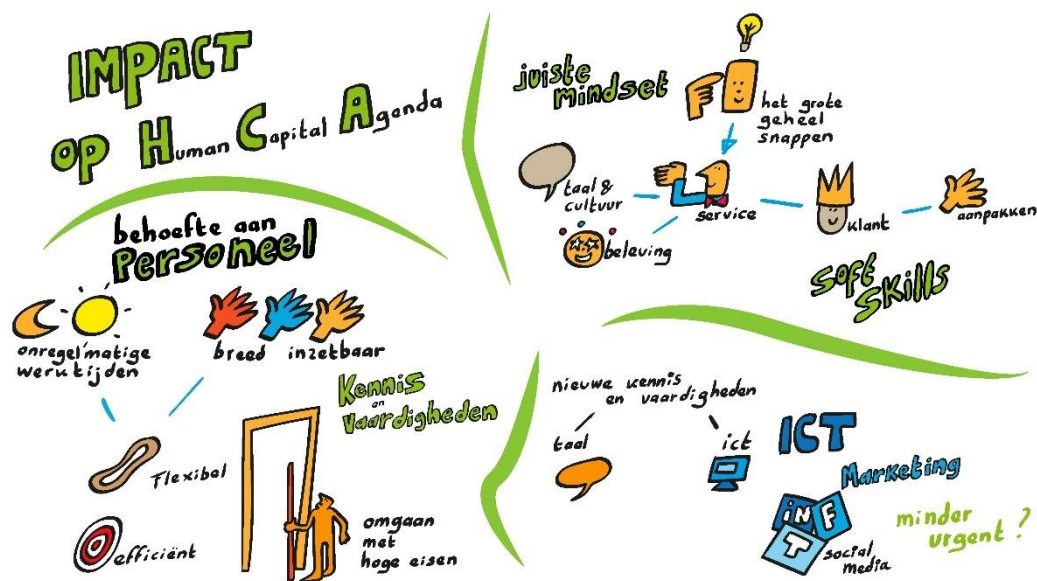 IMPACT
OP Human Capital Agenda
behoefte aan
Personeel
onregelmatige
werktijden
breed inzetbaar
Flexibel
efficiënt
Kennis
en
Vaardigheden
omgaan
met
hoge eisen
juiste
mindset
het grote
geheel
snappen
taal &
cultuur
service
beleving
klant
aanpakken
Soft
Skills
nieuwe kennis
en vaardigheden
taal
ict
ICT
Marketing
iN
F
T
social
media
minder
urgent?